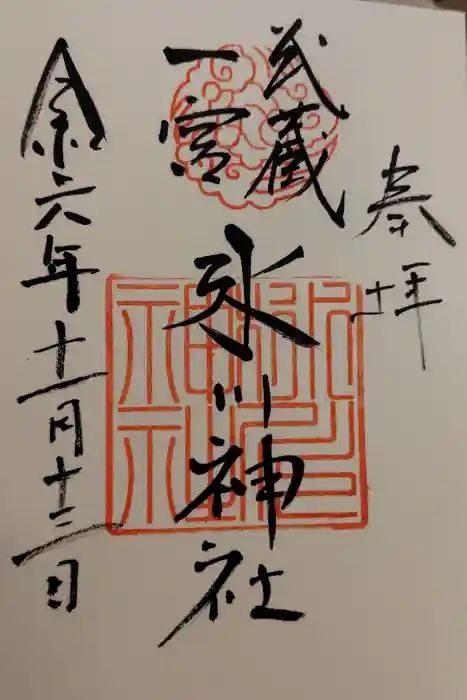 奉拝
武蔵
一宮
氷川神社
令六年十一月十二日
氷川神社